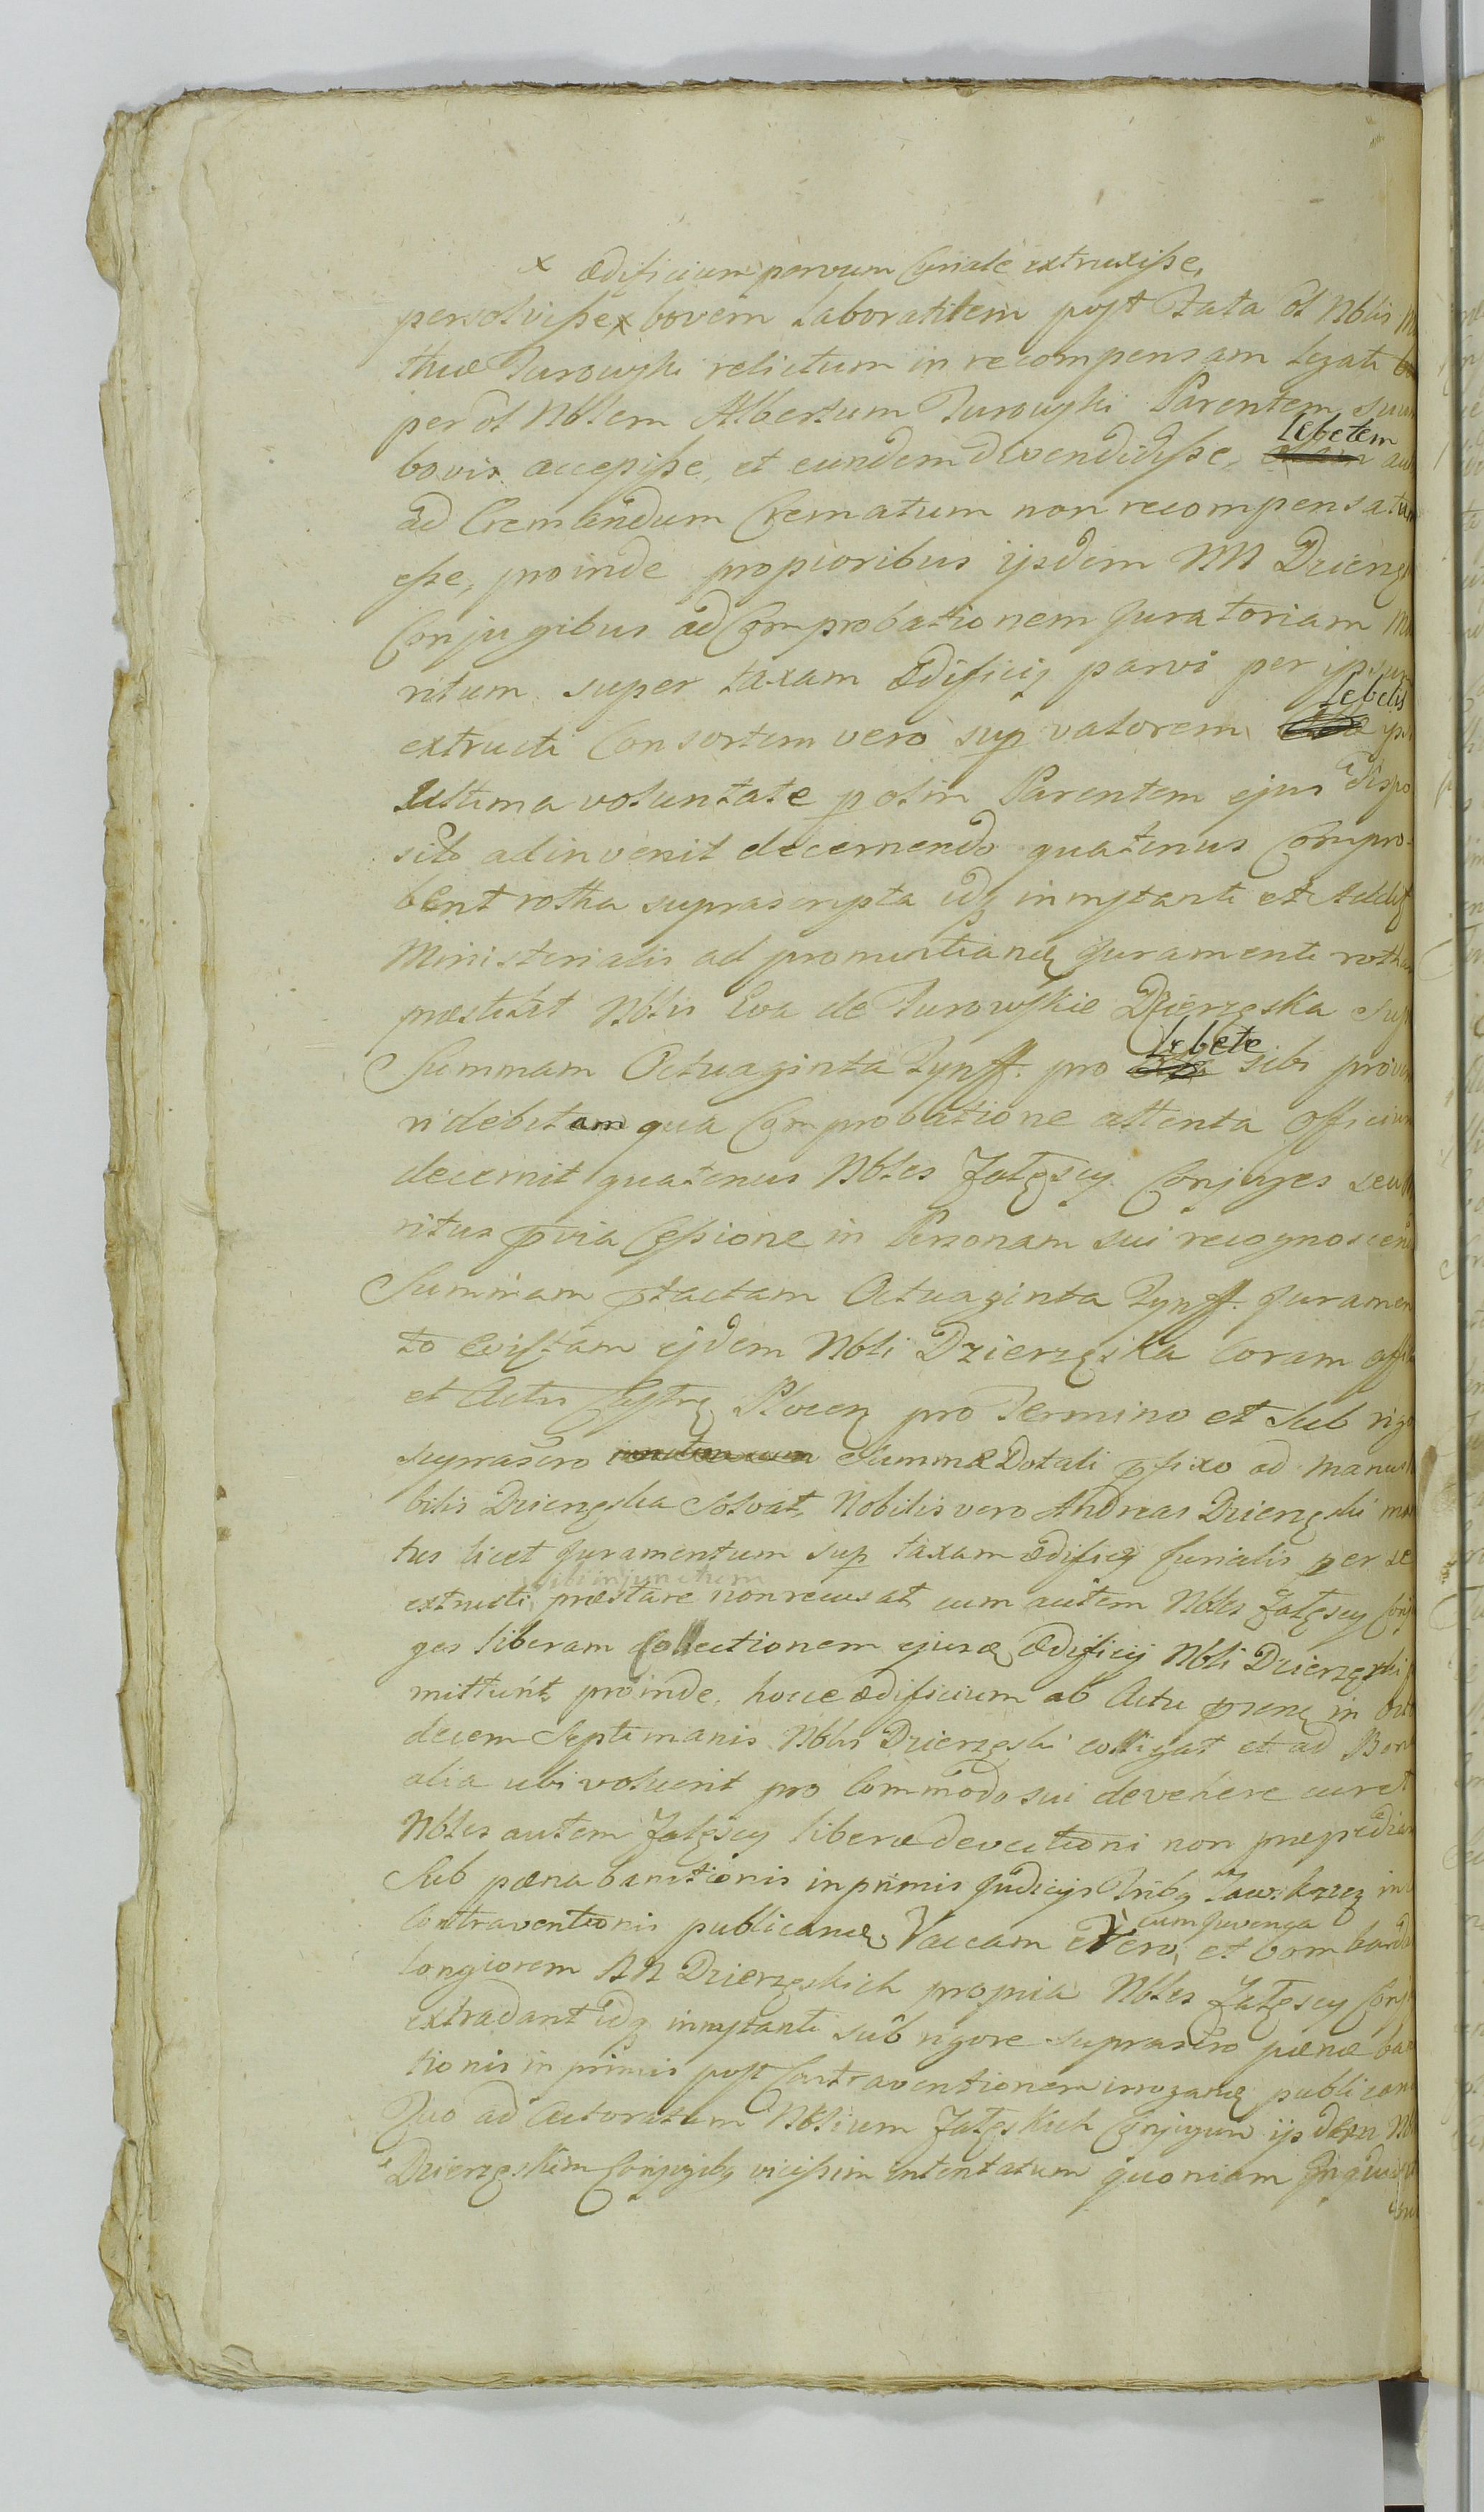 x ædificium parvum Curiale extruxiße,
persolviße x bovem laboratilem post Fata ol Nblis M
thiæ Turowski relictum in recompensam legati
per ol Nblem Albertum Turowski Parentem suum
bovis accepiße, et eundem divendidiße, Lebetem au
ad Cremandum Crematum non recompensatum
eße, proinde propioribus ijsdem NN Dzierzę
Conjugibus ad Comprobationem Juratoriam Ma
ritum super taxam ædificij parvi per ipsum
extructi Consortem vero sup valorem Lebetis
Ultima voluntate p olim Parentem ejus dispo
sito adinvenit decernendo quatenus Compro-
bent rotha suprascripta idq in instanti et Addit
Ministerialis ad pronuntiandę Juramenti rotham
præstitit Nblis Eva de Turowskie Dzierzęska Sup
Summam Octuaginta Tynff. pro Lebete sibi prove
ri debitam qua Comprobatione attenta Officium
decernit quatenus Nbles Załęscy Conjuges seu M
ritus pvia Ceßione in Personam sui recognoscen
Summam ptactam Octuaginta Tynff. Juramen
to evictam ejdem Nbli Dzierzęska Coram offi
et Actis Castrę Plocen pro Termino et Sub rigo
suprascro Summæ Dotali pfixo ad manus
bilis Dzierzęska Solvat, Nobilis vero Andreas Dzierzęski mar
tus licet Juramentum sup taxam ædificij Curialis per se
sibi injunctum
extructi præstare non recusat cum autem Nbles Załęscy Conj
ges liberam Collectionem ejusdę ædificij Nbli Dzierzęski
mittunt, proinde hocce ædificium ab Actu pnti in
decem Septimanis Nblis Dzierzęski colligat et ad Bona
alia ubi voluerit pro Commodo sui devehere curet
Nbles autem Załęscy liberæ devectioni non præpedian
Sub pæna bannitionis in primis Judicijs in
Contraventionis publicandę, Vaccam Vero cum Juvenca et
longiorem NN Dzierzęskich propria Nbles Załęscy Conj
extradant idq in instanti sub rigore suprascro pænæ ban
tionis in primis post Contraventionem irrogandę publican
Quo ad Actoratum Nblium Załęskich Conjugum ijsdem Nbl
Dzierzęskim Conjugibq vicißim intentatum quoniam